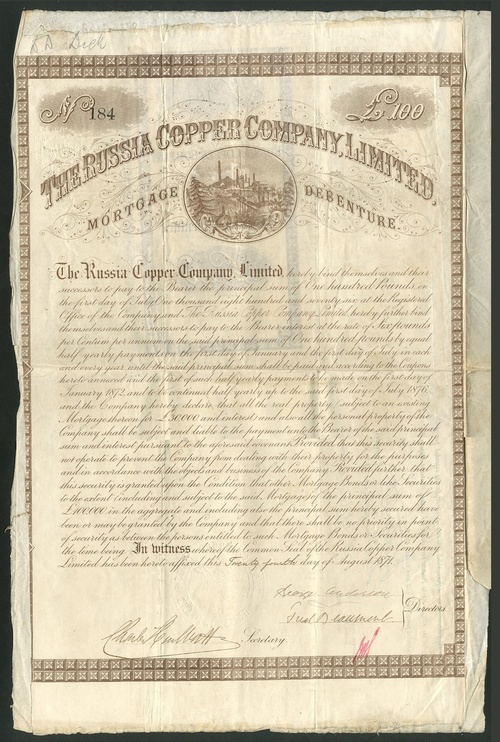 Dick
No 184
£100
THE RUSSIA COPPER COMPANY, LIMITED,
MORTGAGE DEBENTURE.
The Russia Copper Company, Limited, hereby bind themselves and their
successors to pay to the Bearer the principal sum of One hundred Pounds on
the first day of July One thousand eight hundred and seventy six at the Registered
Office of the Company and The Russia Copper Company Limited hereby further bind
themselves and their successors to pay to the Bearer interest at the rate of Six pounds
per Centum per annum on the said principal sum of One hundred pounds by equal
half yearly payments on the first day of January and the first day of July in each
and every year until the said principal sum shall be paid and according to the Coupons
hereto annexed and the first of such half yearly payments to be made on the first day of
January 1872 and to be continued half yearly up to the said first day of July 1876
and the Company hereby declare that all the real property subject to an existing
Mortgage thereon for £30000 and interest and also all the personal property of the
Company shall be subject and liable to the payment unto the Bearer of the said principal
sum and interest pursuant to the aforesaid covenants Provided that this security shall
not operate to prevent the Company from dealing with their property for the purposes
and in accordance with the objects and business of the Company Provided further that
this security is granted upon the Condition that other Mortgage Bonds or like Securities
to the extent (including and subject to the said Mortgage) of the principal sum of
£100000 in the aggregate and including also the principal sum hereby secured have
been or may be granted by the Company and that there shall be no priority in point
of security as between the persons entitled to such Mortgage Bonds or Securities for
the time being. In witness whereof the Common Seal of the Russia Copper Company
Limited has been hereto affixed this Twenty fourth day of August 1871.
George Anderson
Fred Beaumont
Directors.
Secretary.